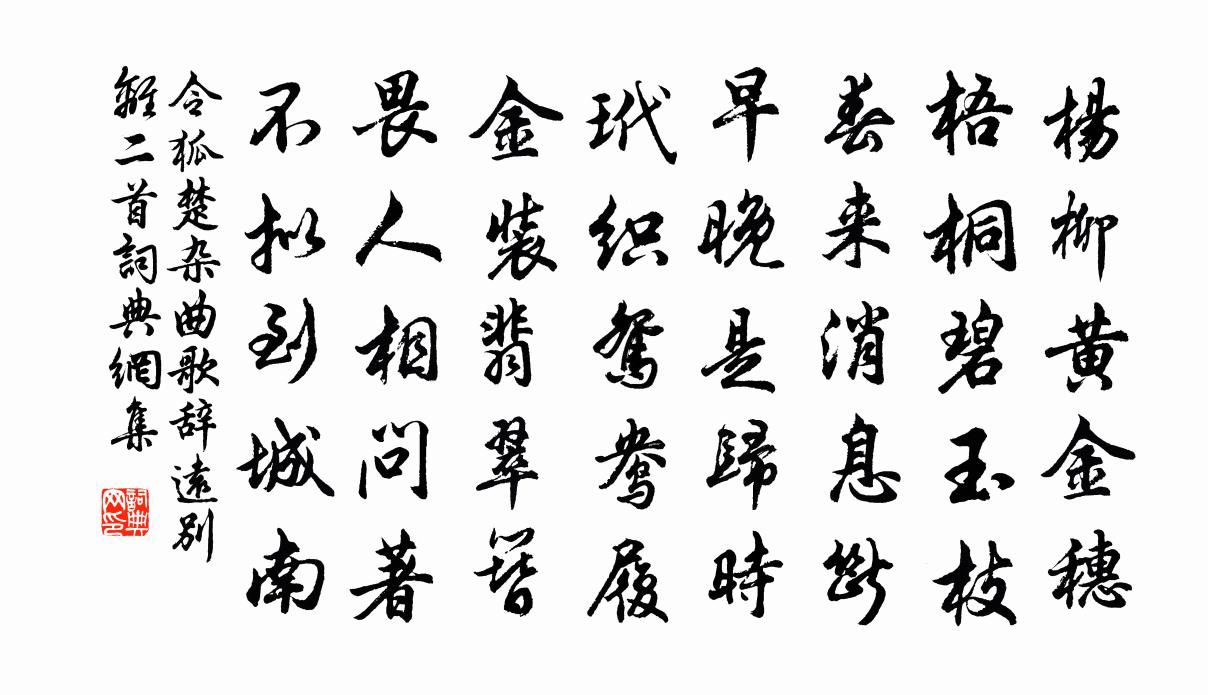 楊柳黄金穗
梧桐碧玉枝
春来消息斷
早晚是歸時
玳织鴛鴦履
金裝翡翠簪
畏人相問著
不拟到城南
令狐楚杂曲歌辞遠别
離二首詞典網集
詞典网印